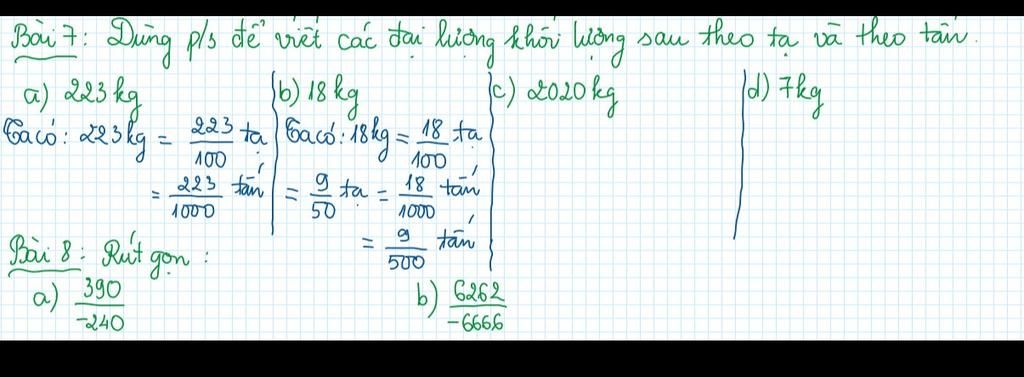 Bài 7: Dùng p/s để viết các đại lượng khối lượng sau theo tạ và theo tấn.
a) 223kg
Ta có: 223kg = 223/100 tạ
= 223/1000 tấn
b) 18kg
Ta có: 18kg = 18/100 tạ
= 9/50 tạ = 18/1000 tấn
= 9/500 tấn
c) 2020kg
d) 7kg
Bài 8: Rút gọn:
a) 390/-240
b) 6262/-6666